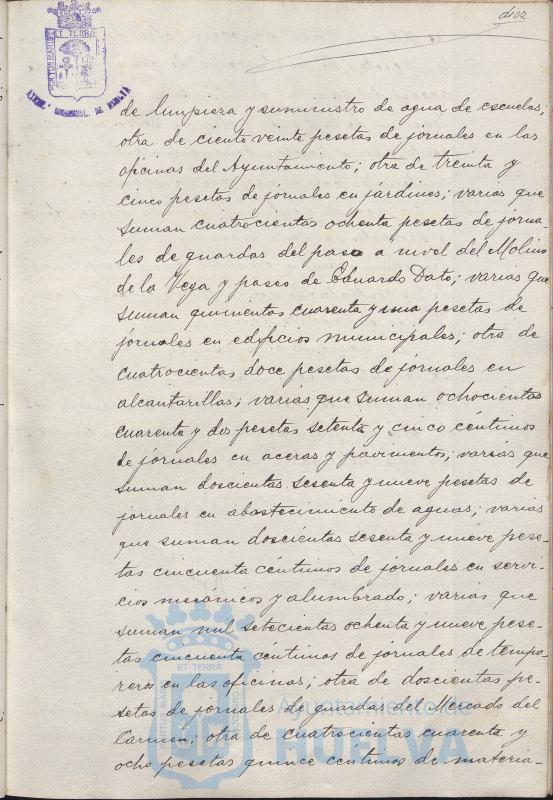 diez
PORTUS MARIS ET TERRA
de limpieza y suministro de agua de escuelas;
otra de ciento veinte pesetas de jornales en las
oficinas del Ayuntamiento; otra de treinta y
cinco pesetas de jornales en jardines; varias que
suman cuatrocientas ochenta pesetas de jorna-
les de guardas del paso a nivel del Molino
de la Vega y paseo de Eduardo Dato; varias que
suman quinientas cuarenta y una pesetas de
jornales en edificios municipales; otra de
cuatrocientas doce pesetas de jornales en
alcantarillas; varias que suman ochocientas
cuarenta y dos pesetas setenta y cinco céntimos
de jornales en aceras y pavimentos; varias que
suman doscientas sesenta y nueve pesetas de
jornales en abastecimiento de aguas; varias
que suman doscientas sesenta y nueve pese-
tas cincuenta céntimos de jornales en servi-
cios mecánicos y alumbrado; varias que
suman mil setecientas ochenta y nueve pese-
tas cincuenta centimos de jornales de tempo-
reros en las oficinas; otra de doscientas pe-
setas de jornales de guardas del Mercado del
Carmen; otra de cuatrocientas cuarenta y
ocho pesetas quince centimos de materia-
Ayuntamiento de
HUELVA